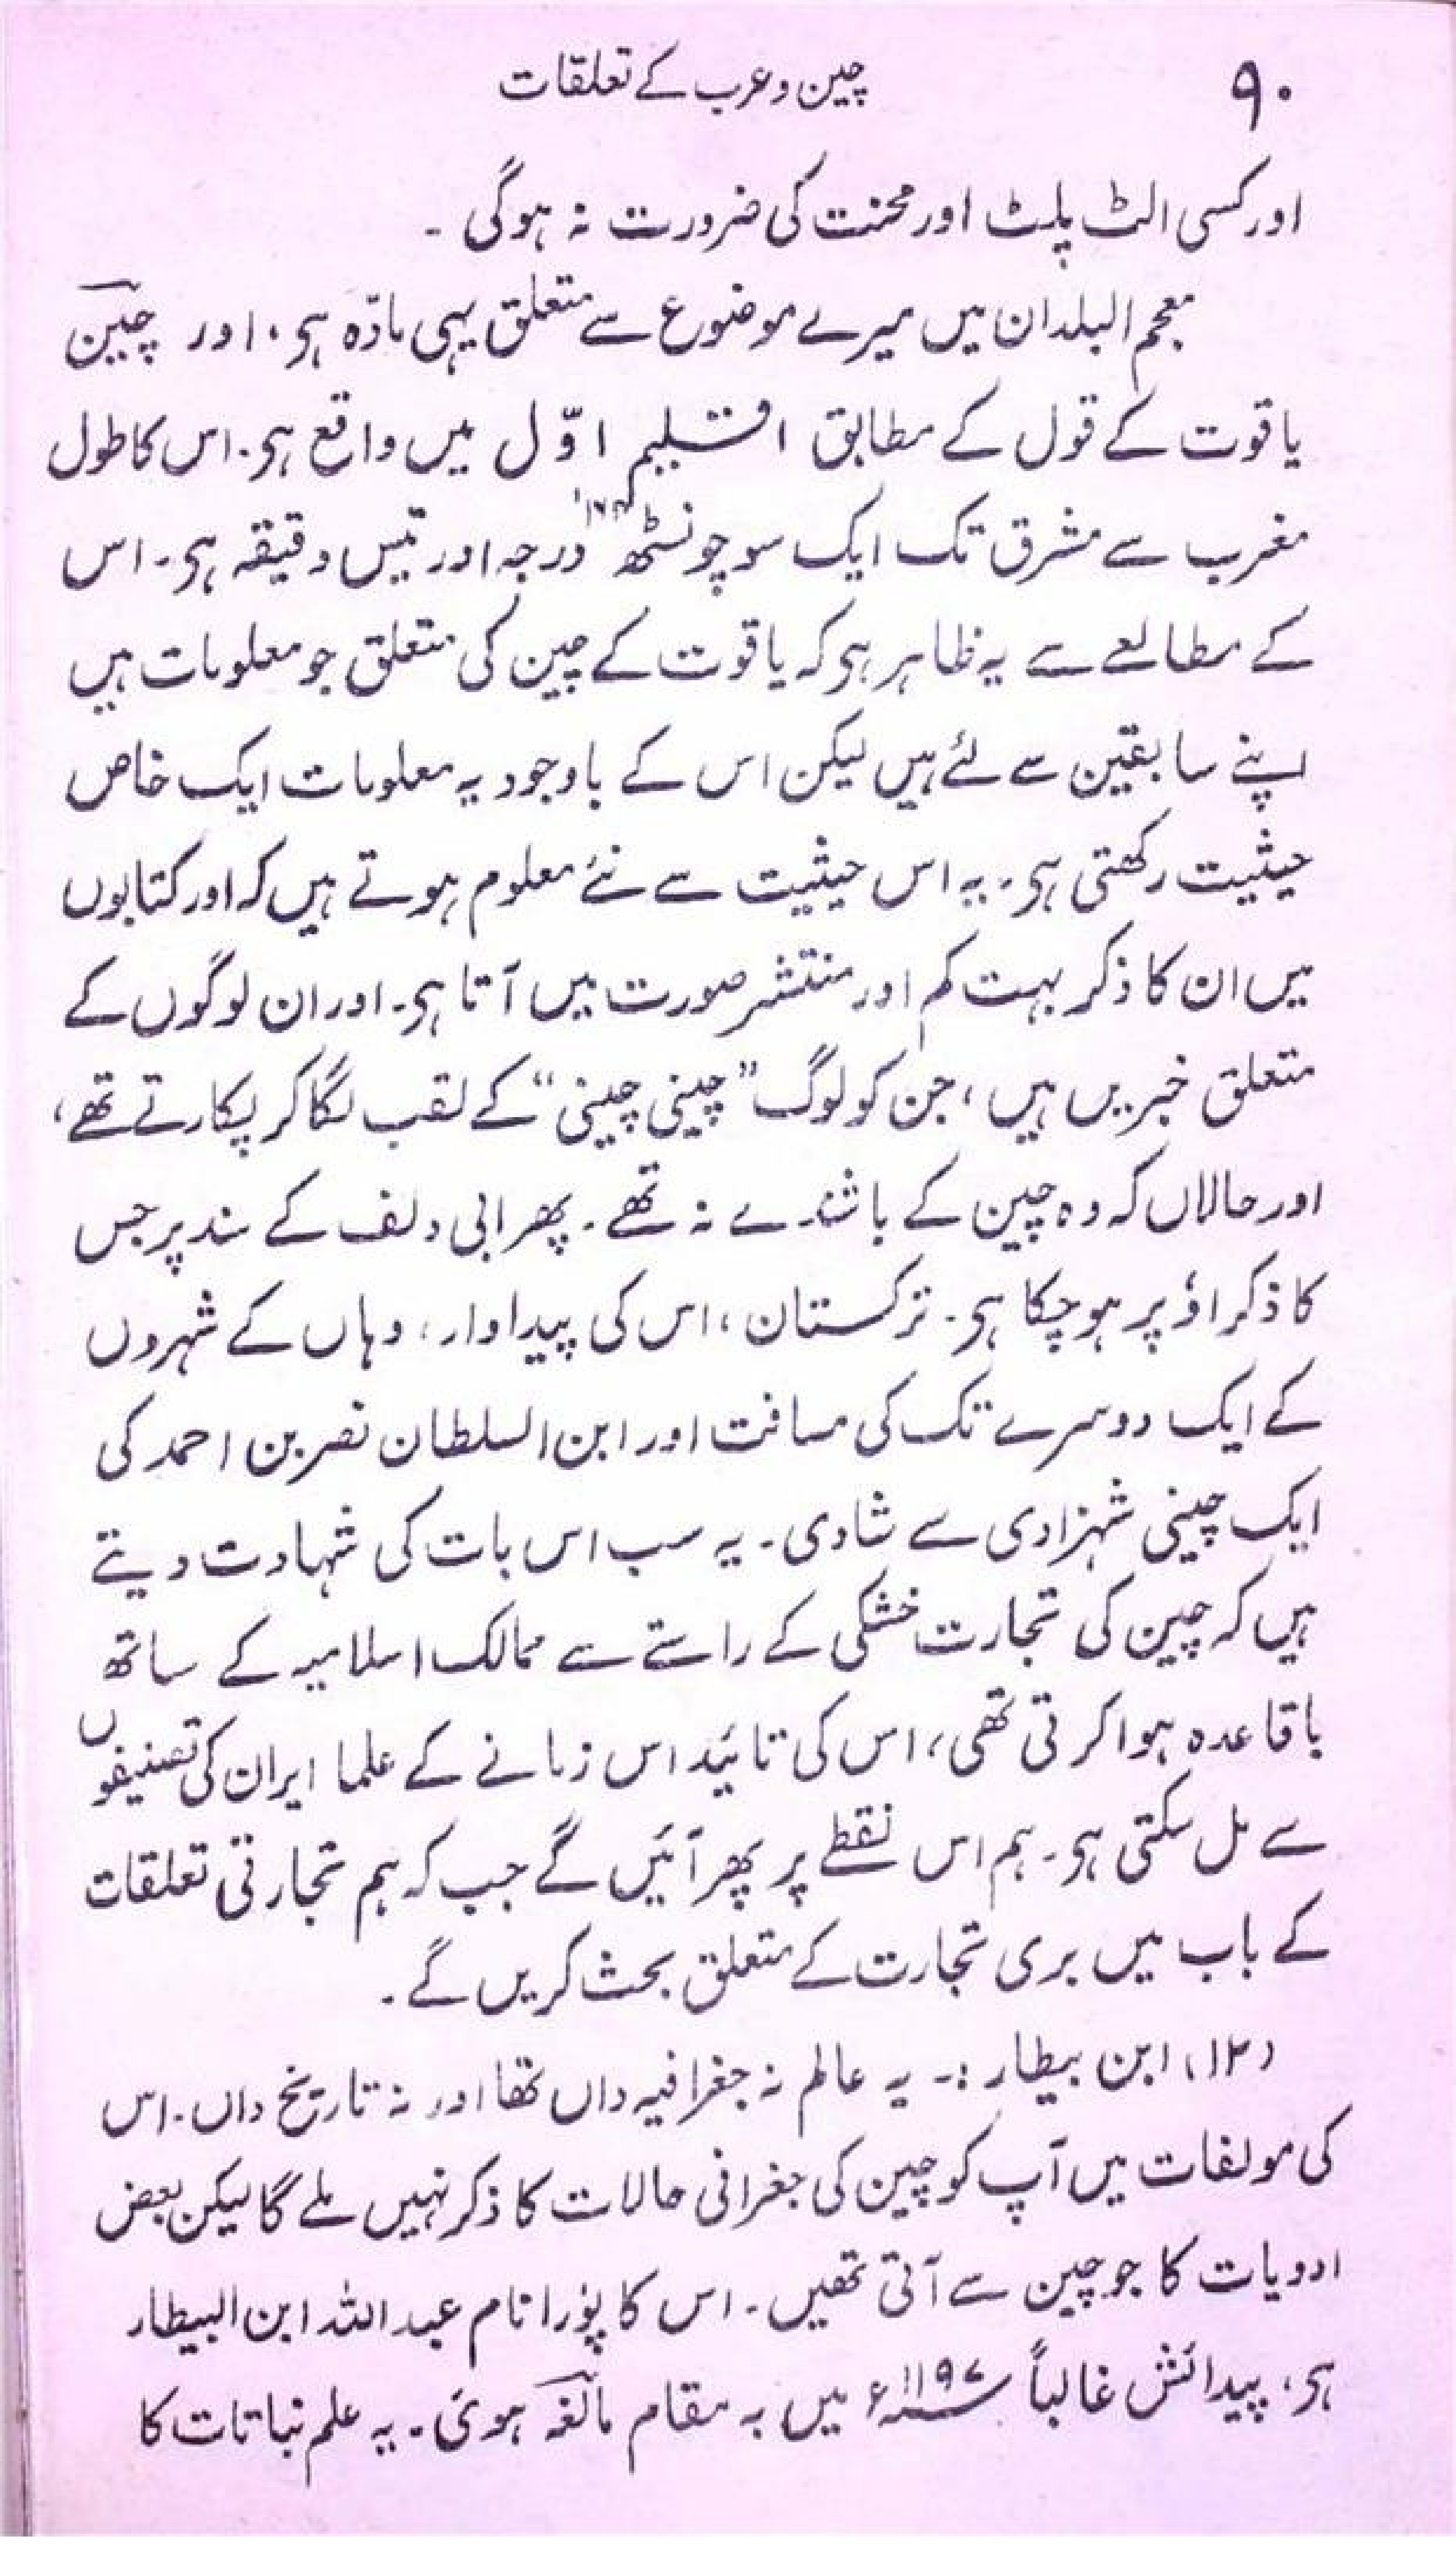 ۹۰
چین و عرب کے تعلقات
اور کسی الٹ پلٹ اور محنت کی ضرورت نہ ہوگی ۔
معجم البلدان میں میرے موضوع سے متعلق یہی مادّہ ہی، اور چین
یاقوت کے قول کے مطابق اقلیم اوّل میں واقع ہی. اس کا طول
مغرب سے مشرق تک ایک سو چونسٹھ ۱۶۴ درجہ اور تیس دقیقہ ہی ۔ اس
کے مطالعے سے یہ ظاہر ہی کہ یاقوت کے چین کی متعلق جو معلومات ہیں
اپنے سابقین سے لئے ہیں لیکن اس کے باوجود یہ معلومات ایک خاص
حیثیت رکھتی ہی. یہ اس حیثیت سے نئے معلوم ہوتے ہیں کہ اور کتابوں
میں ان کا ذکر بہت کم اور منتشر صورت میں آتا ہی۔ اور ان لوگوں کے
متعلق خبریں ہیں، جن کو لوگ ”چینی چینی“ کے لقب لگا کر پکارتے تھے،
اور حالاں کہ وہ چین کے باشندے نہ تھے ۔ پھر ابی دلف کے سند پر جس
کا ذکر اؤپر ہو چکا ہی ۔ ترکستان، اس کی پیداوار، وہاں کے شہروں
کے ایک دوسرے تک کی مسافت اور ابن السلطان نصر بن احمد کی
ایک چینی شہزادی سے شادی ۔ یہ سب اس بات کی شہادت دیتے
ہیں کہ چین کی تجارت خشکی کے راستے سے ممالک اسلامیہ کے ساتھ
باقاعدہ ہوا کرتی تھی، اس کی تائید اس زمانے کے علما ایران کی تصنیفوں
سے مل سکتی ہی ۔ ہم اس نقطے پر پھر آئیں گے جب کہ ہم تجارتی تعلقات
کے باب میں بری تجارت کے متعلق بحث کریں گے ۔
(۱۲) ابن بیطار :۔ یہ عالم نہ جغرافیہ داں تھا اور نہ تاریخ داں ۔ اس
کی مولفات میں آپ کو چین کی جغرافی حالات کا ذکر نہیں ملے گا لیکن بعض
ادویات کا جو چین سے آتی تھیں ۔ اس کا پؤرا نام عبد اللہ ابن البیطار
ہی، پیدائش غالباً ۱۱۹۷ء میں بہ مقام مالغہ ہوئی ۔ یہ علم نباتات کا